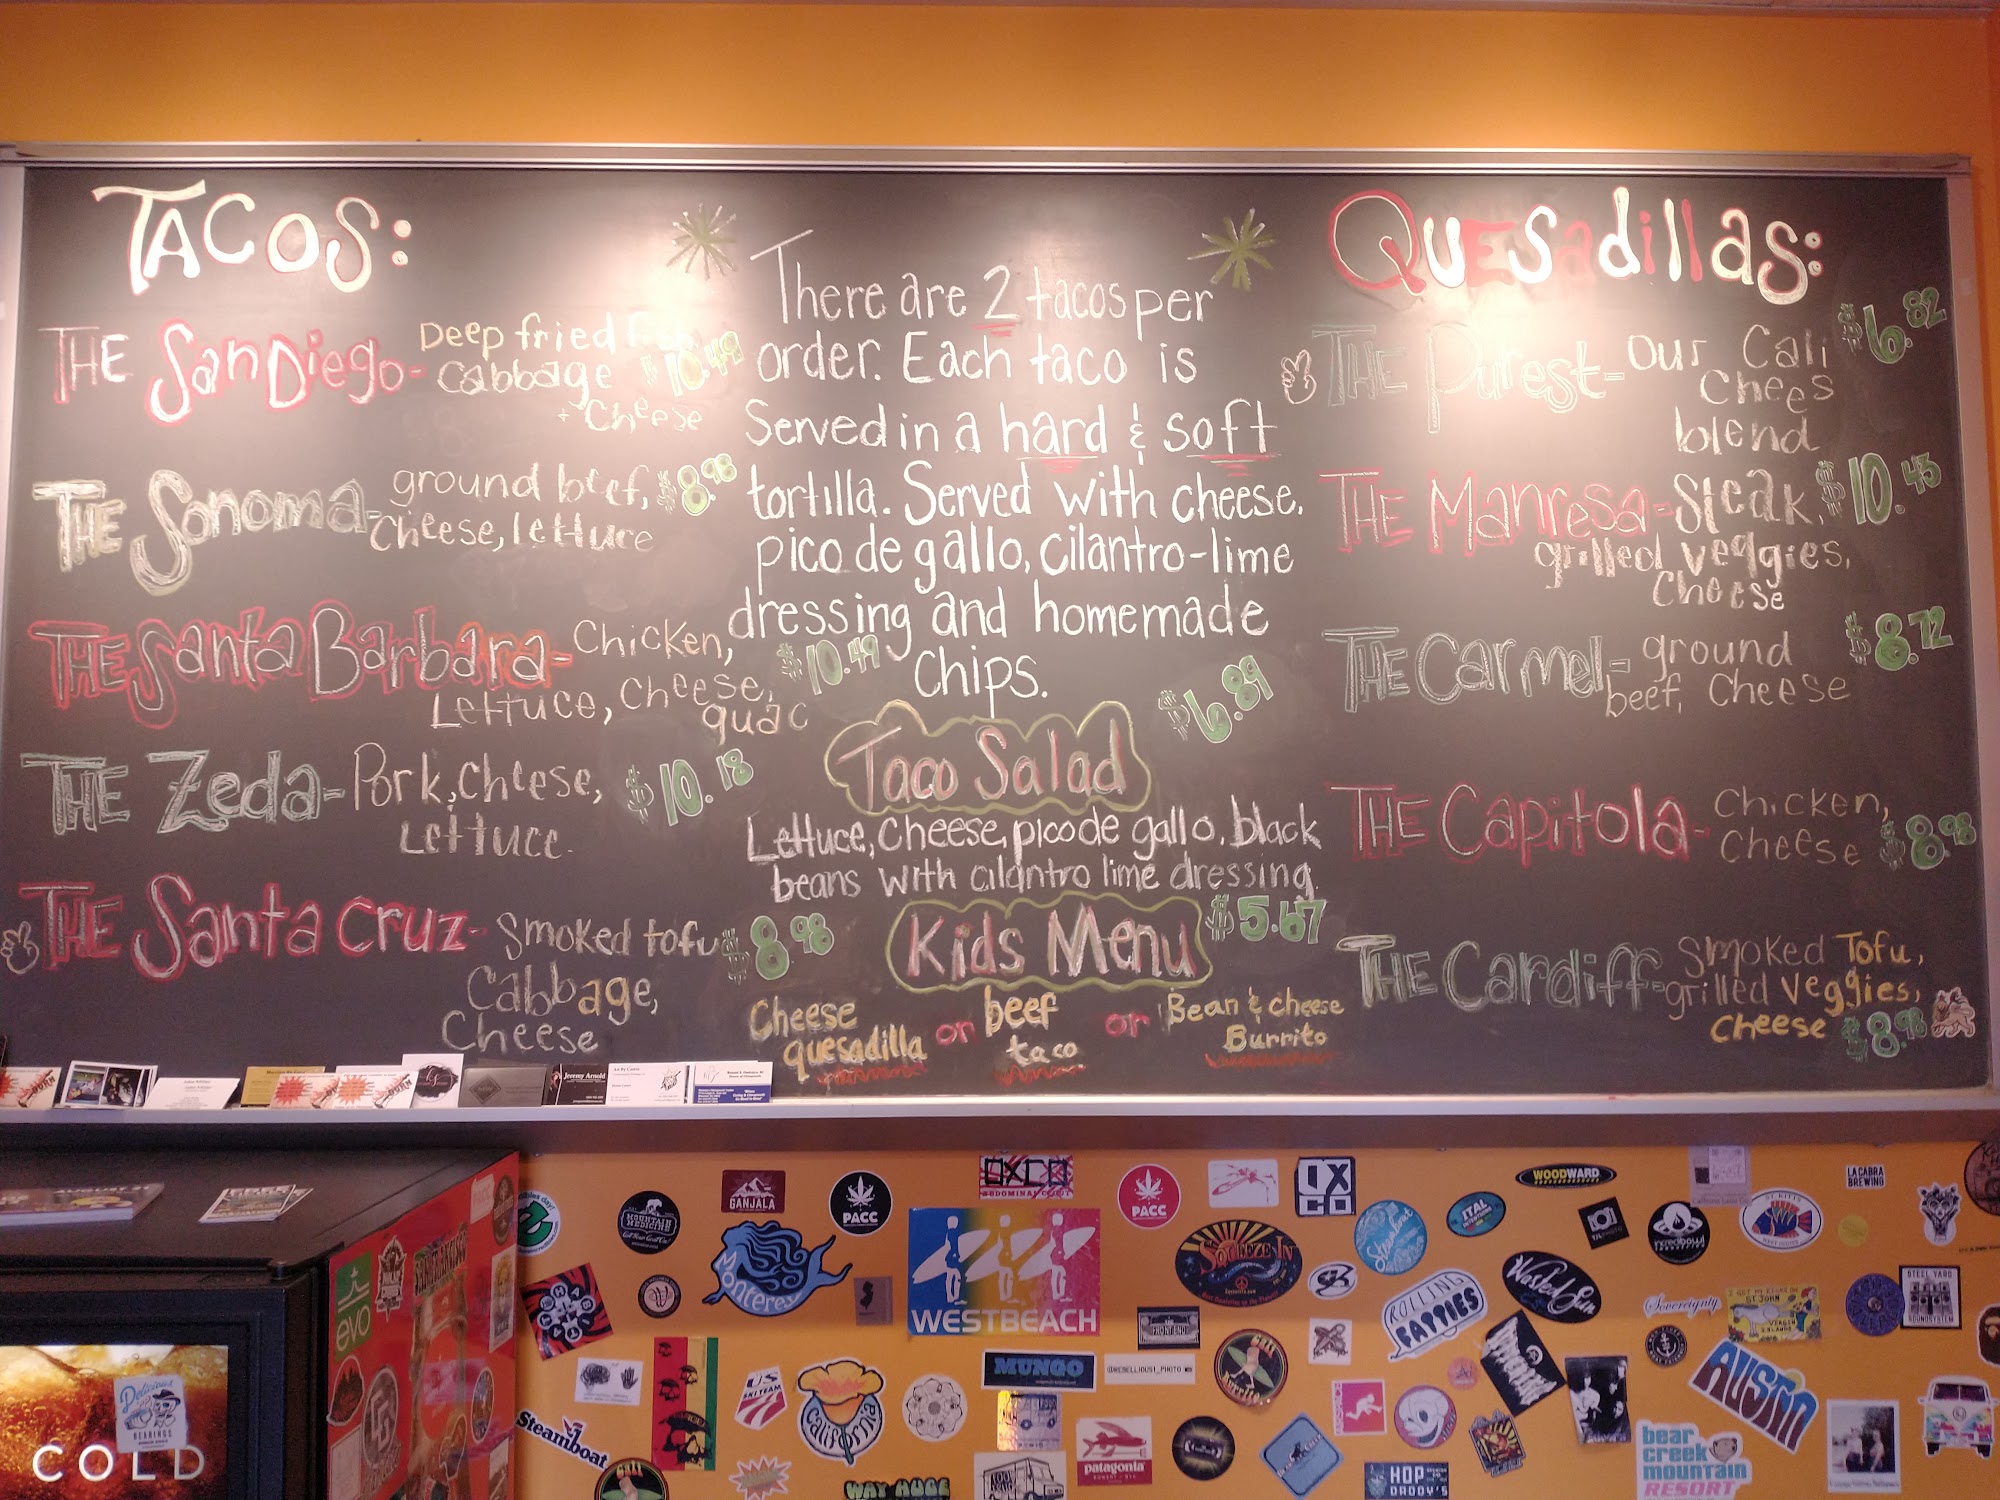 TACOS:
THE San Diego- Deep fried fish
Cabbage $10.49
+ Cheese
THE Sonoma- ground beef, $8.98
Cheese, lettuce
THE Santa Barbara- Chicken,
Lettuce, Cheese, $10.49
guac
THE Zeda- Pork, cheese, $10.18
Lettuce.
THE Santa Cruz- Smoked tofu $8.98
Cabbage,
Cheese
There are 2 tacos per
order. Each taco is
Served in a hard & soft
tortilla. Served with cheese,
pico de gallo, cilantro-lime
dressing and homemade
chips.
Taco Salad $6.89
Lettuce, cheese, pico de gallo, black
beans with cilantro lime dressing.
Kids Menu $5.67
Cheese quesadilla or beef taco or Bean & cheese Burrito
Quesadillas:
THE Purest- Our Cali $6.82
Chees
blend
THE Manresa- Steak, $10.43
grilled veggies,
Cheese
THE Carmel- ground $8.72
beef, Cheese
THE Capitola- Chicken,
Cheese $8.98
THE Cardiff- Smoked Tofu,
grilled veggies,
Cheese $8.98
Jeremy Arnold
evo
Delicious
BEARINGS
COLD
MOUNTAIN
MEDICINE
GANJALA
PACC
OXCO
PACC
OX
CO
WOODWARD
LA CABRA
BREWING
Monterey
WESTBEACH
SQUEEZE IN
Steamboat
ITAL
incredibowl
ROLLING
FATTIES
Wicked Gun
Sovereignty
ST. JOHN
VIRGIN
ISLANDS
STEEL YARD
SOUNDSYSTEM
FRONT END
MUNGO
@REBELLIOUS1_PHOTO
US
SKI TEAM
California
Steamboat
patagonia
AUSTIN
WAY HUGE
HOP
DADDY'S
bear
creek
mountain
RESORT